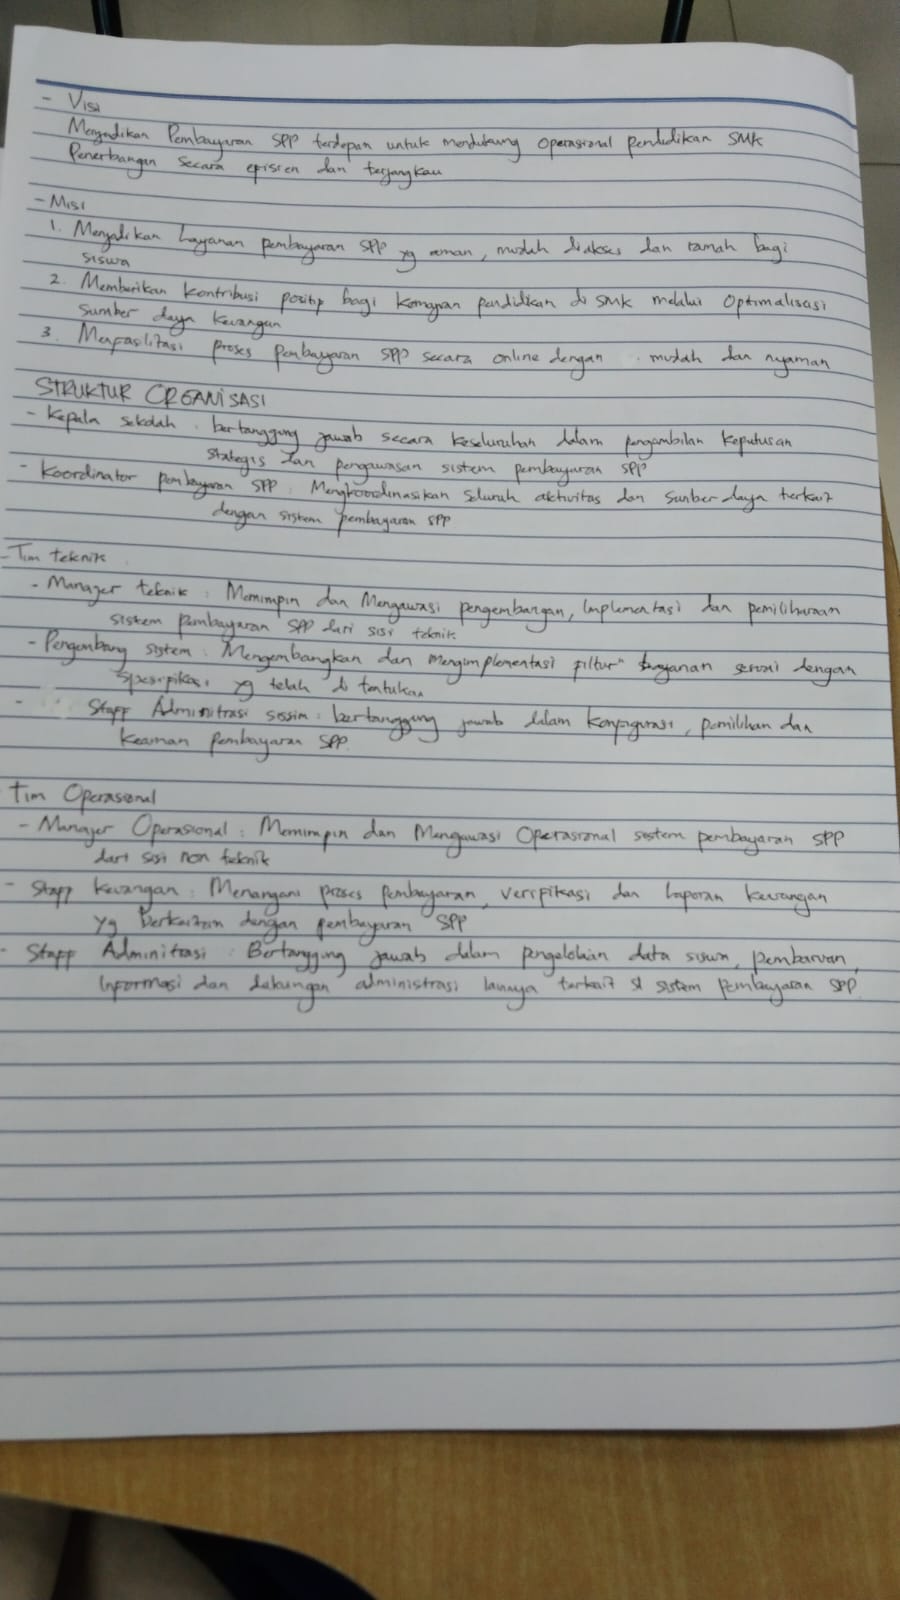 - Visi
Menjadikan Pembayaran SPP terdepan untuk mendukung operasional pendidikan SMK
Penerbangan secara episien dan terjangkau
- Misi
1. Menyadikan Layanan pembayaran SPP yg aman, mudah diakses dan ramah bagi
siswa
2. Memberikan kontribusi positip bagi kemajuan pendidikan di SMK melalui optimalisasi
sumber daya keuangan
3. Mempasilitasi proses pembayaran SPP secara online dengan mudah dan nyaman
STRUKTUR ORGANISASI
- Kepala sekolah : bertanggung jawab secara keseluruhan dalam pengambilan keputusan
stategis dan pengawasan sistem pembayaran SPP
- Koordinator pembayaran SPP : Mengkoordinasikan seluruh aktivitas dan sumber daya terkait
dengan sistem pembayaran SPP
- Tim teknik
- Manager teknik : Memimpin dan Mengawasi pengembangan, Implementasi dan pemiliharaan
sistem pembayaran SPP dari sisi teknik
- Pengembang sistem : Mengembangkan dan mengimplementasi piltur" sesuai dengan
spesipikasi yg telah di tentukan
- Stapp Adminitrasi sissim : bertanggung jawab dalam konpigurasi, pemilihan dan
keaman pembayaran SPP.
Tim Operasional
- Manager Operasional : Memimpin dan Mengawasi Operasional sistem pembayaran SPP
dari sisi non teknik
- Stapp keuangan : Menangani proses pembayaran, veripikasi dan laporan keuangan
yg berkaitan dengan pembayaran SPP
- Stapp Adminitrasi : Bertanggung jawab dalam pengelolaan data siswa, pembaruan,
Inpormasi dan dukungan administrasi lainnya terkait sistem pembayaran SPP.